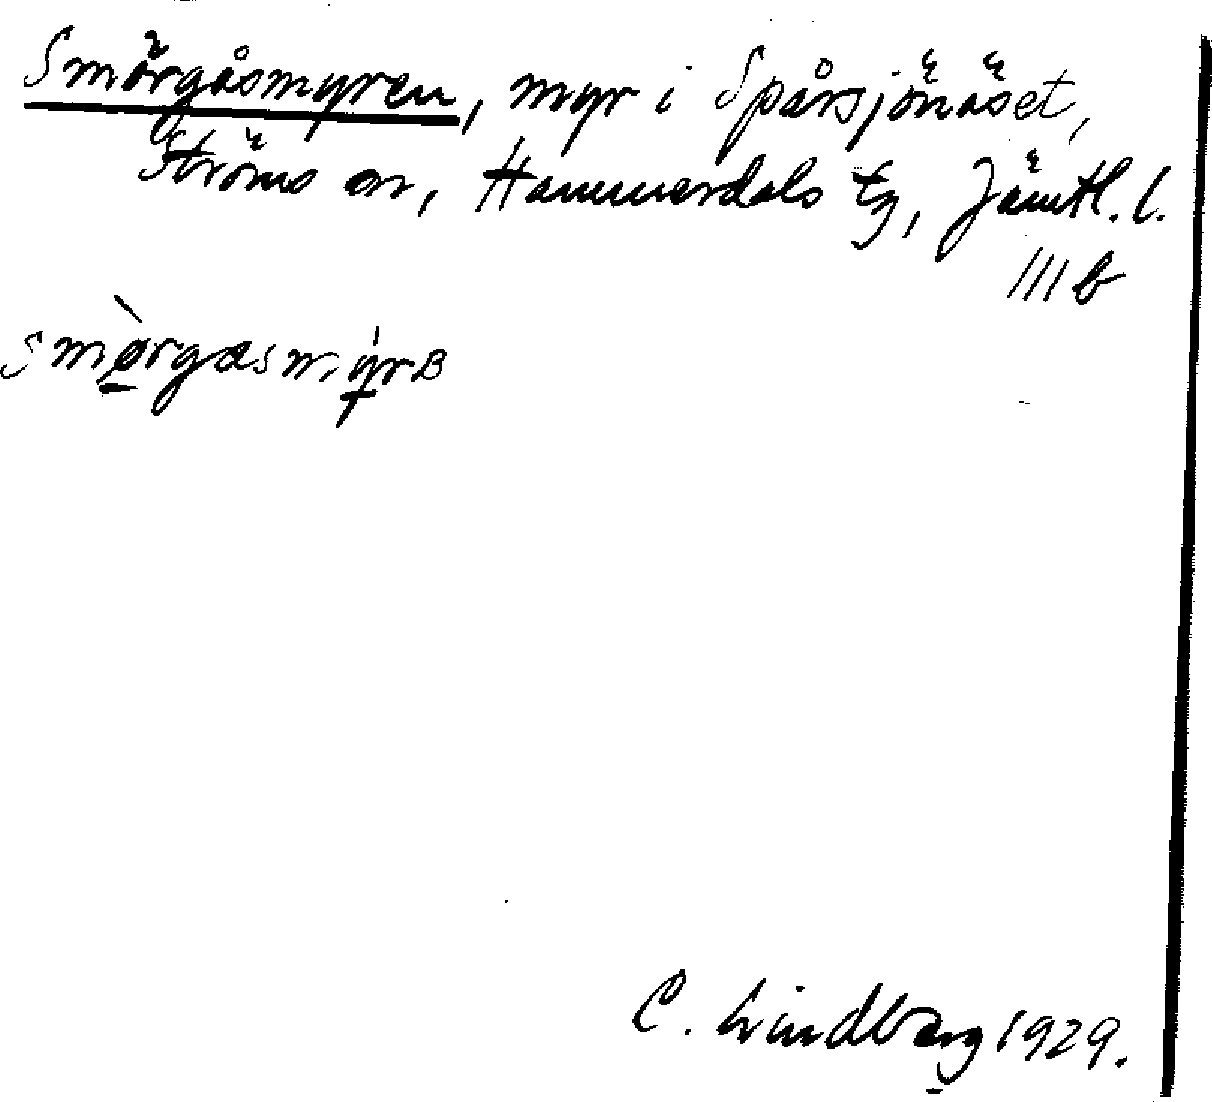 Smörgåsmyren, myr i Spårsjönäset,
Ströms sn, Hammerdals tg, Jämtl. l.
III b
smørgasmyrB
C. Lindberg 1929.